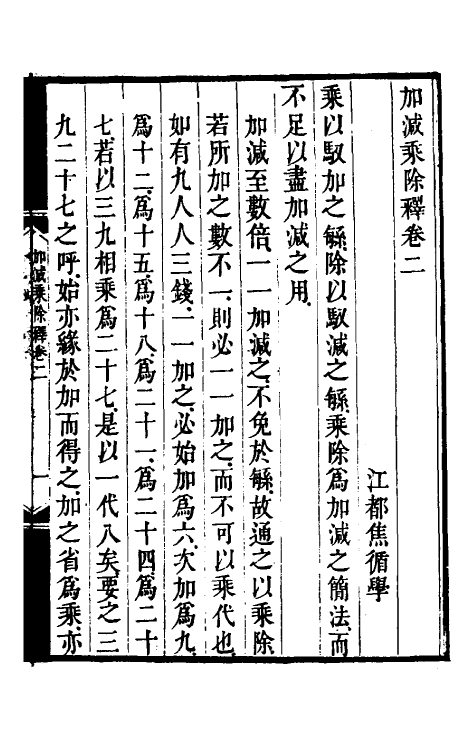 加減乘除釋卷二
江都焦循學
乘以馭加之繇除以馭減之繇乘除爲加減之簡法而
不足以盡加減之用
加減至數倍一一加減之不免於繇故通之以乘除
若所加之數不一則必一一加之而不可以乘代也
如有九人人三錢一一加之必始加爲六次加爲九
爲十二爲十五爲十八爲二十一爲二十四爲二十
七若以三九相乘爲二十七是以一代八矣要之三
九二十七之呼始亦緣於加而得之加之省爲乘亦
加減乘除釋卷二
一